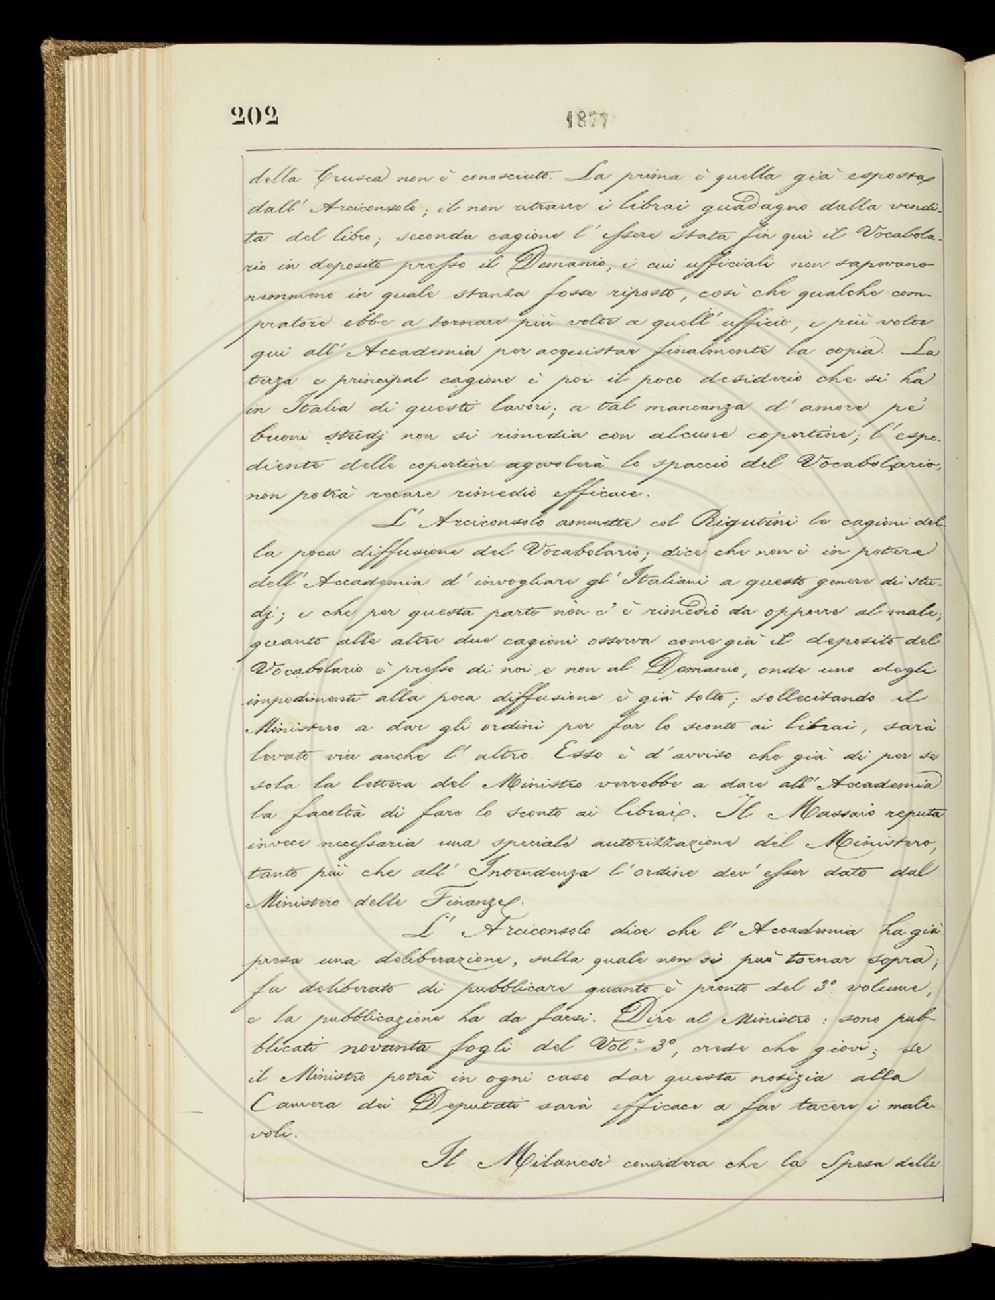 202
1877
della Crusca non è conosciuto. La prima è quella già esposta
dall' Arciconsolo; il non ritrarre i librai guadagno dalla vendi-
ta del libro; seconda cagione l' essere stata fin qui il Vocabola-
rio in deposito presso il Demanio, i cui ufficiali non sapevano
nemmeno in quale stanza fosse riposto, così che qualche com-
pratore ebbe a tornare più volte a quell' ufficio, e più volte
qui all' Accademia per acquistar finalmente la copia. La
terza e principal cagione è poi il poco desiderio che si ha
in Italia di questi lavori; a tal mancanza d' amore pe'
buoni studj non si rimedia con alcune copertine; l' espe-
diente delle copertine agevolerà lo spaccio del Vocabolario,
non potrà recare rimedio efficace.
L' Arciconsolo ammette col Rigutini le cagioni del-
la poca diffusione del Vocabolario; dice che non è in potere
dell' Accademia d' invogliare gl' Italiani a questo genere di stu-
dj; e che per questa parte non c' è rimedio da opporre al male;
quanto alle altre due cagioni osserva come già il deposito del
Vocabolario è presso di noi e non al Demanio, onde uno degli
impedimenti alla poca diffusione è già tolto; sollecitando il
Ministero a dar gli ordini per far lo sconto ai librai, sarà
levato via anche l' altro. Esso è d' avviso che già di per se
sola la lettera del Ministro verrebbe a dare all' Accademia
la facoltà di fare lo sconto ai librai. Il Massaio reputa
invece necessaria una speciale autorizzazione del Ministero,
tanto più che all' Intendenza l' ordine dev' esser dato dal
Ministero delle Finanze.
L' Arciconsolo dice che l' Accademia ha già
presa una deliberazione, sulla quale non si può tornar sopra;
fu deliberato di pubblicare quanto è pronto del 3° volume,
e la pubblicazione ha da farsi. Dire al Ministro: sono pub-
blicati novanta fogli del Vol.e 3°, crede che giovi; se
il Ministro potrà in ogni caso dar questa notizia alla
Camera dei Deputati sarà efficace a far tacere i male-
voli.
Il Milanesi considera che la Spesa delle